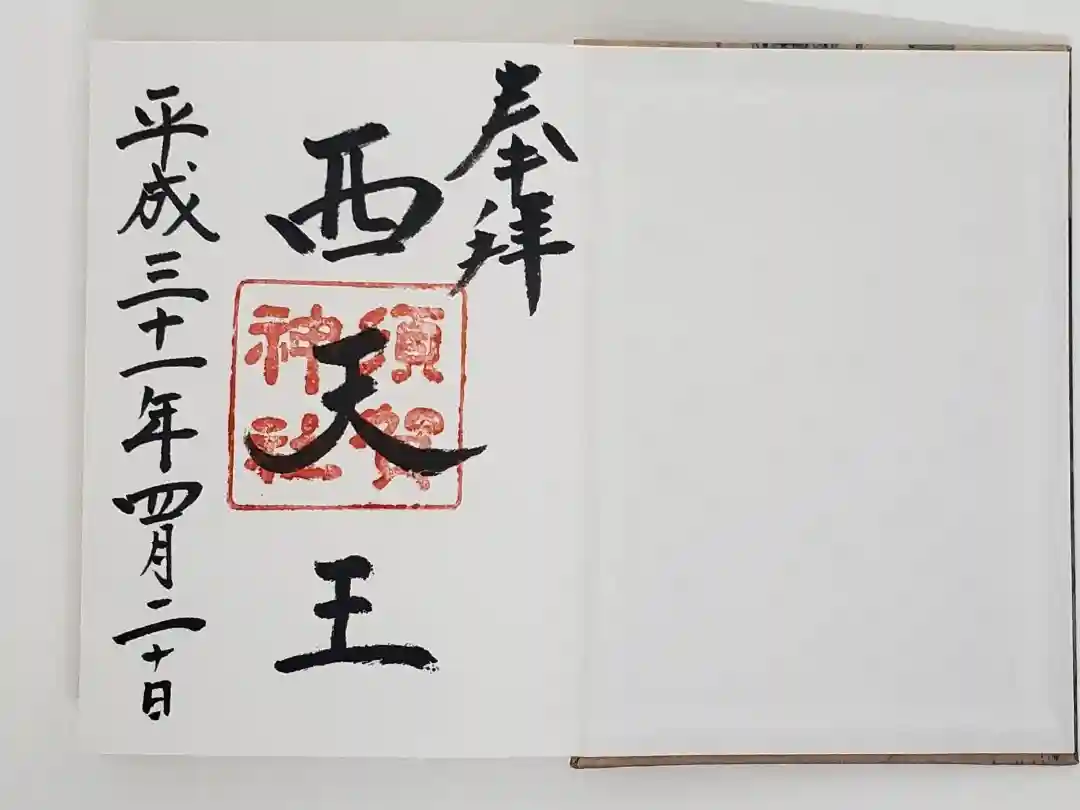 奉拝
西天王
須賀神社
平成三十一年四月二十日